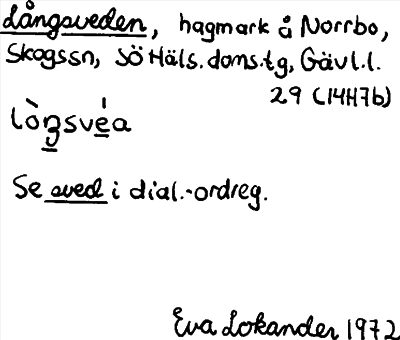 Långsveden, hagmark å Norrbo,
Skogssn, Sö Häls. doms.tg, Gävl.l.
29 (14H7b)
lòŋsvéa
Se sved i dial.-ordreg.
Eva Lokander 1972